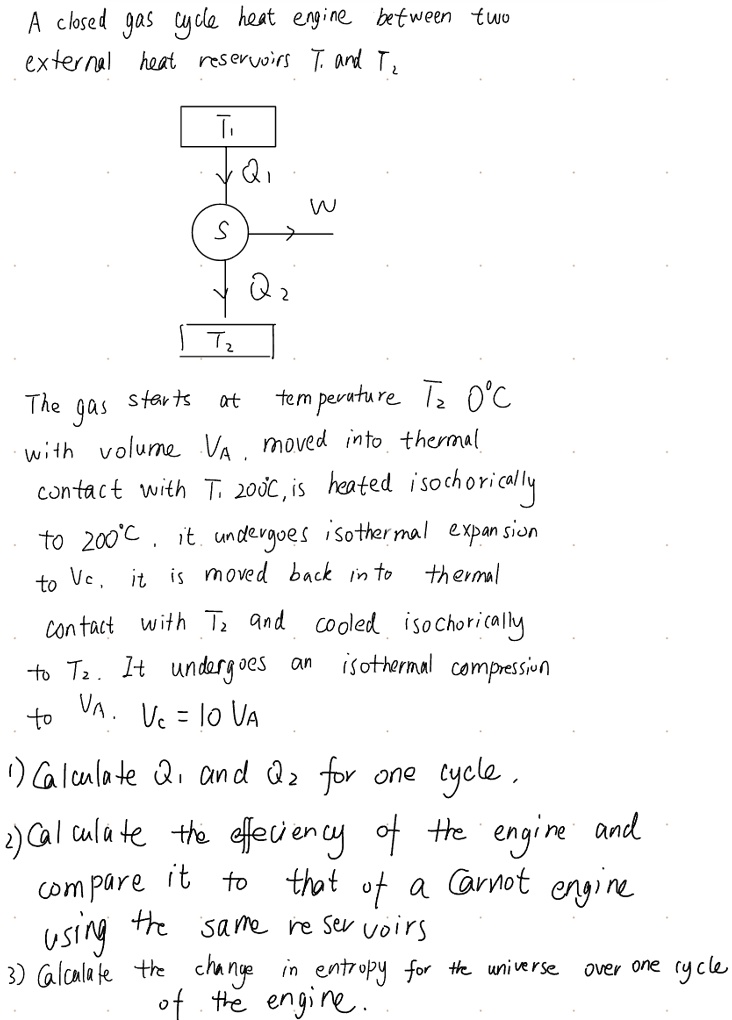 A closed gas cycle heat engine between two
external heat reservoirs T₁ and T₂
T₁
Q₁
W
S
Q₂
T₂
The gas starts at temperature T₂ 0°C
with volume V_A, moved into thermal
contact with T₁ 200°C, is heated isochorically
to 200°C. it undergoes isothermal expansion
to Vc. it is moved back into thermal
contact with T₂ and cooled isochorically
to T₂. It undergoes an isothermal compression
to V_A. Vc = 10 V_A
1) Calculate Q₁ and Q₂ for one cycle.
2) Calculate the effeciency of the engine and
compare it to that of a Carnot engine
using the same reservoirs
3) Calculate the change in entropy for the universe over one cycle
of the engine.